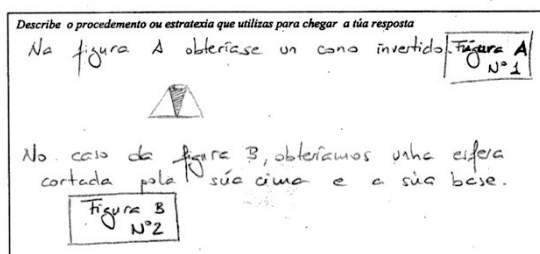 Describe o procedemento ou estratexia que utilizas para chegar a túa resposta
Na figura A obteríase un cono invertido. Figura A
Nº 1
No caso da figura B, obteríamos unha esfera
cortada pola súa cima e a súa base.
Figura B
Nº 2